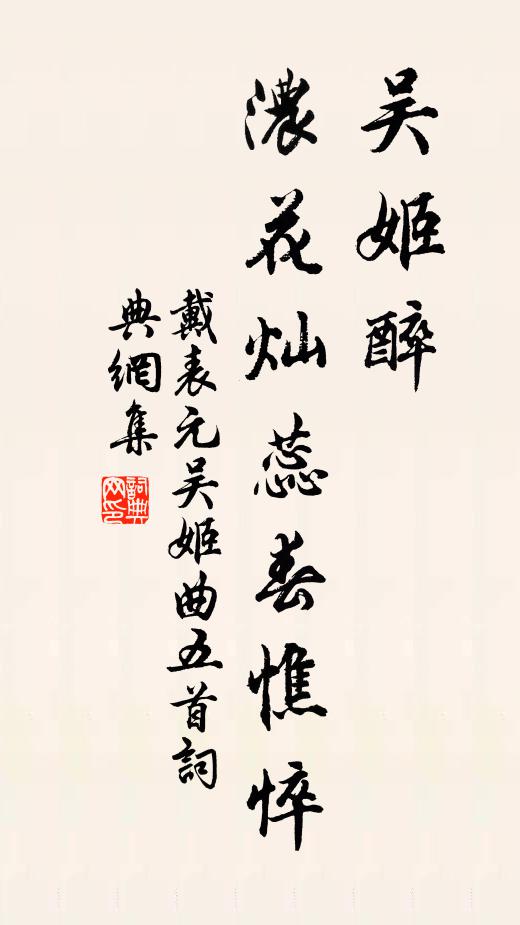 吴姬醉
濃花灿蕊春憔悴
戴表元吴姬曲五首詞
典網集
詞典網印